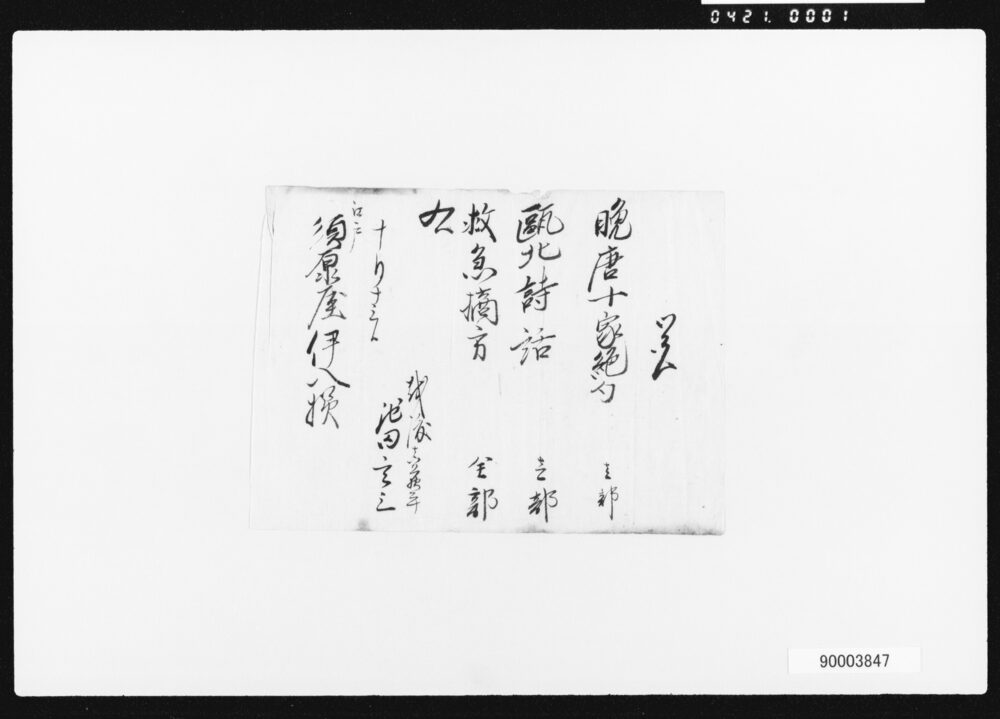 0421. 0001
覚
晩唐十家絶句 壱部
甌北詩話 壱部
救急摘方 全部
〆
十月十三日
越後
池田
江戸
須原屋伊八様
90003847